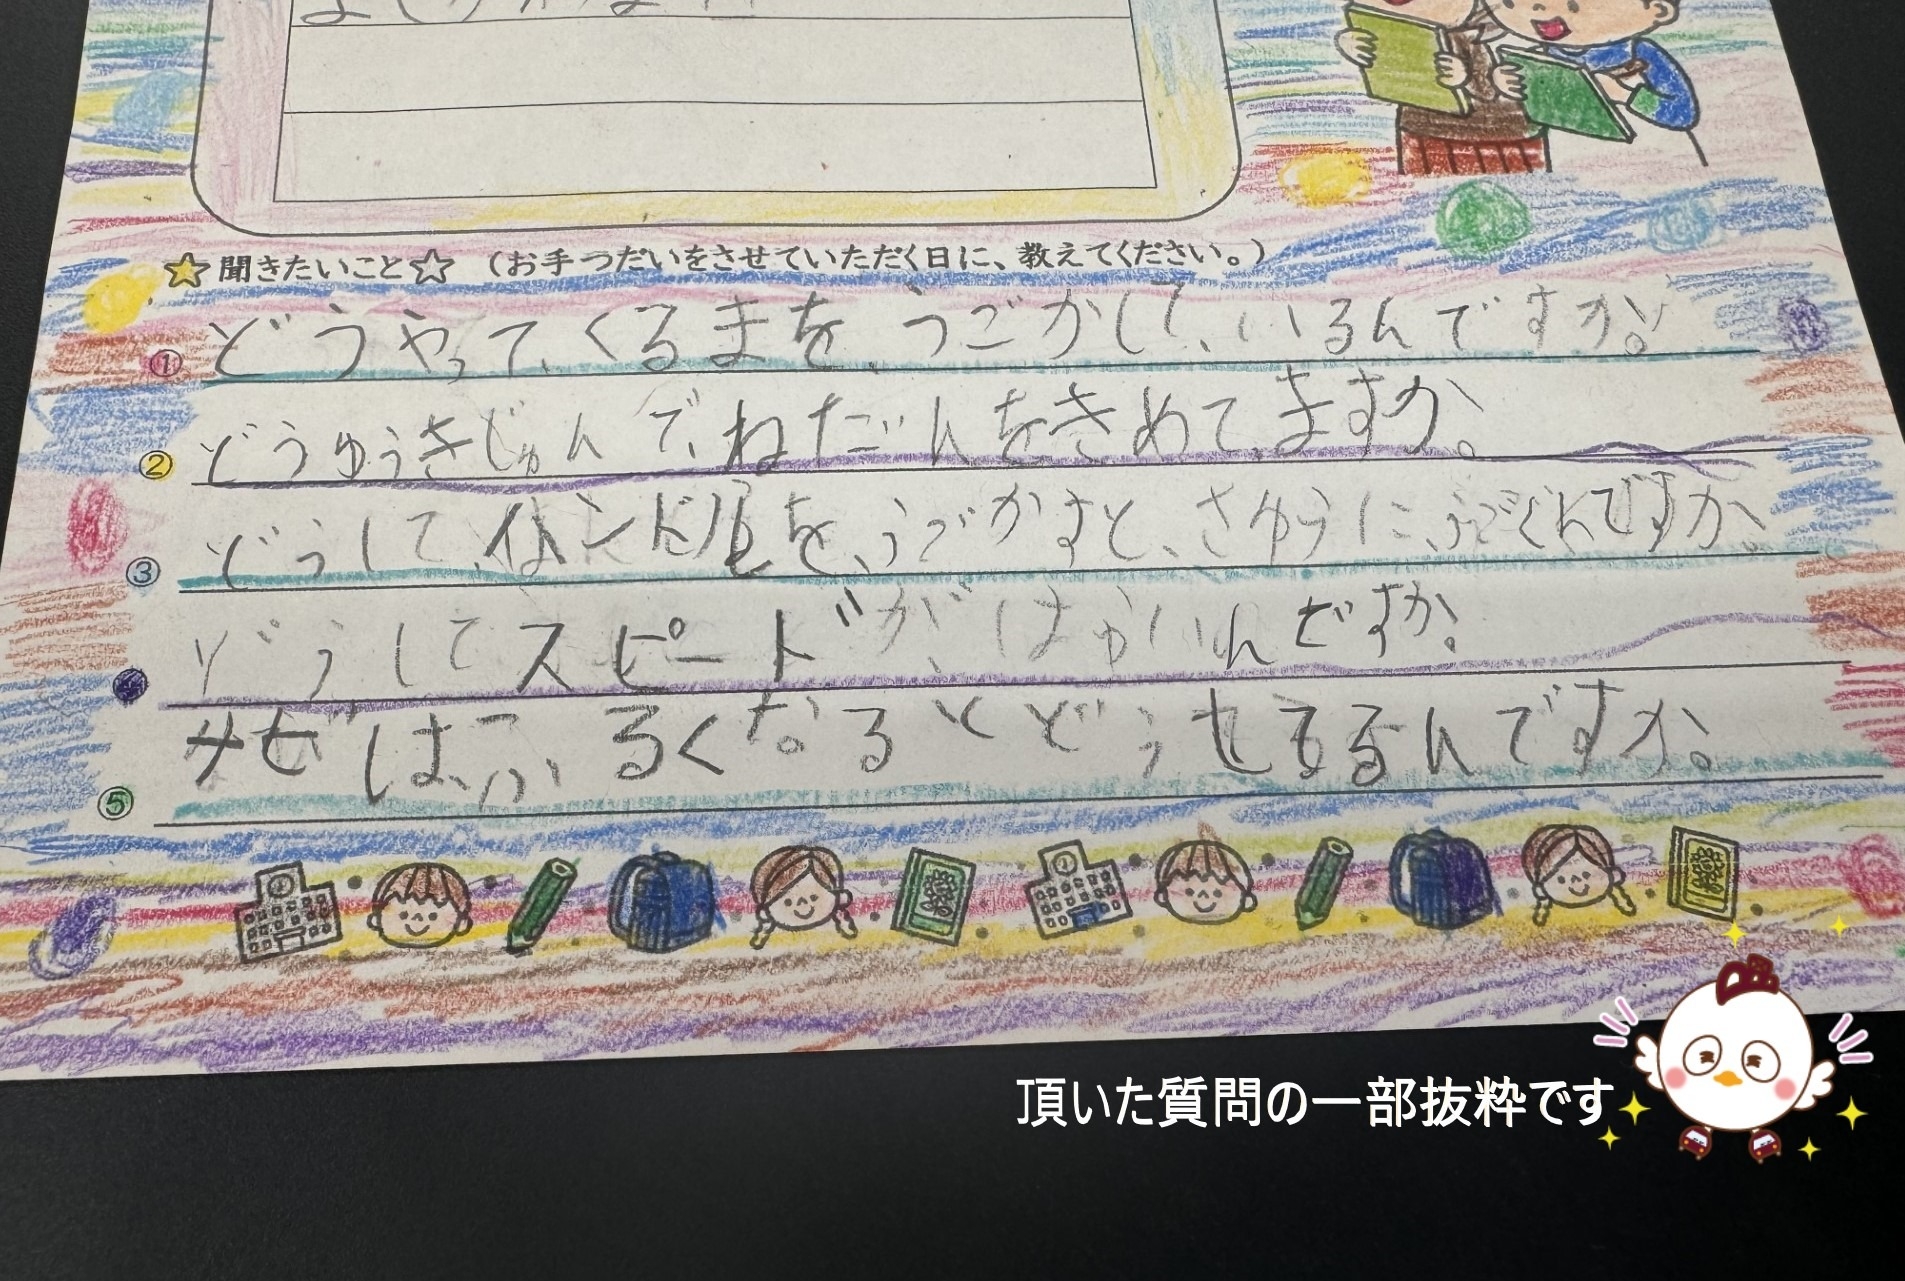 よろしくおねがいします
☆聞きたいこと☆ (お手つだいをさせていただく日に、教えてください。)
① どうやって、くるまを、うごかして、いるんですか。
② どうゆうきじゅんで、ねだんをきめて、ますか。
③ どうして、ハンドルを、うごかすと、さゆうに、うごくんですか。
どうしてスピードが、はやいんですか。
⑤ サビはふるくなるとどうしてでるんですか。
頂いた質問の一部抜粋です